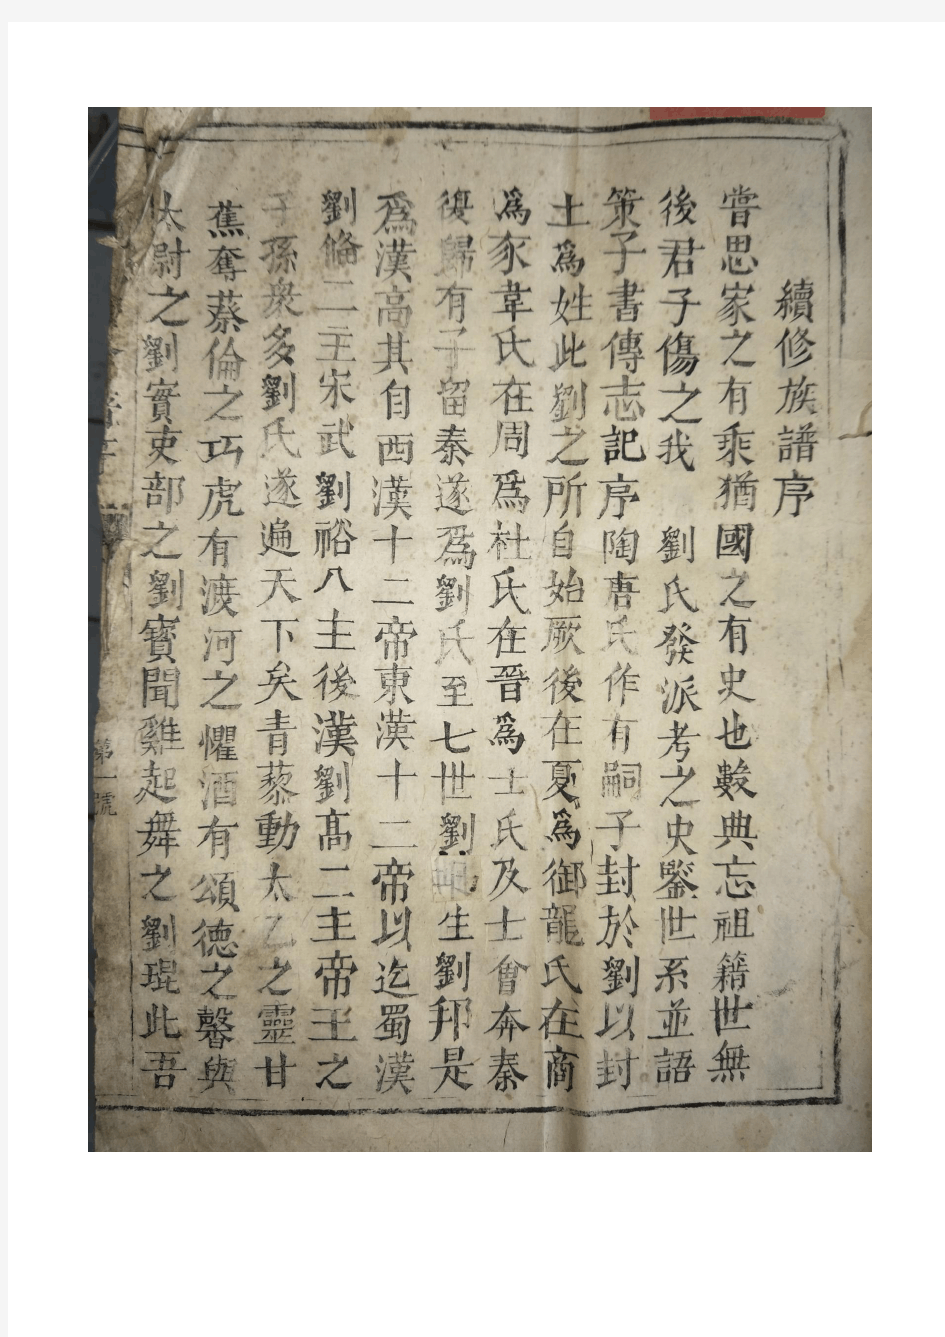 續修族譜序
嘗思家之有乘猶國之有史也數典忘祖籍世無
後君子傷之我 劉氏發派考之史鑒世系並語
策子書傳志記序陶唐氏作有嗣子封於劉以封
土為姓此劉之所自始厥後在夏為御龍氏在商
為豕韋氏在周為杜氏在晉為士氏及士會奔秦
復歸有子留秦遂爲劉氏至七世劉生劉邦是
爲漢高其自西漢十二帝東漢十二帝以迄蜀漢
劉備二主宋武劉裕八主後漢劉高二主帝王之
子孫衆多劉氏遂遍天下矣青藜動太乙之靈甘
蕉奪蔡倫之巧虎有渡河之懼酒有頌德之馨與
太尉之劉實吏部之劉寳聞雞起舞之劉琨此吾
第一號